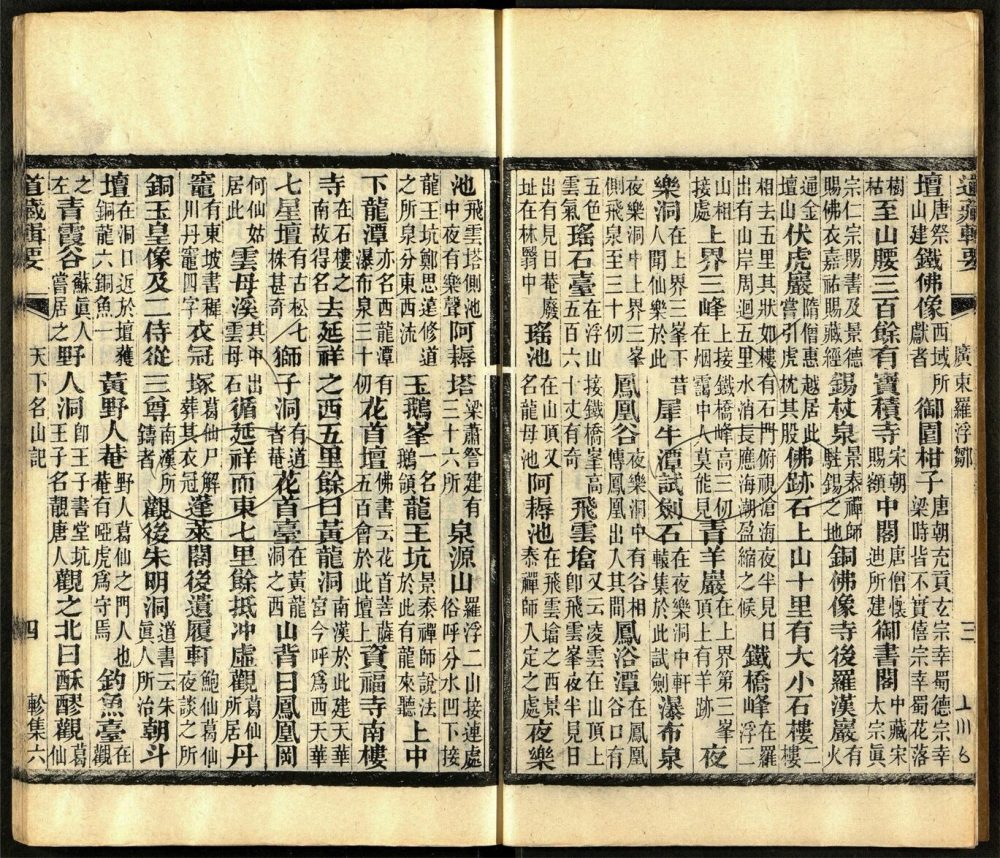 道藏輯要 廣東羅浮鄒 三
壇唐祭山建鐵佛像西域所獻者御園柑子唐朝充貢玄宗幸蜀德宗幸梁時皆不實僖宗幸蜀花落
樹枯至山腰三百餘有寶積寺宋朝賜額中閣唐僧慔迪所建御書閣中藏宋太宗眞
宗仁宗賜書及景德賜佛衣嘉祐賜藏經錫杖泉景泰禪師駐錫之地銅佛像寺後羅漢巖有火
逼金壇山伏虎巖隋僧惠越居此嘗引虎枕其股佛跡石上山十里有大小石樓二樓
相去五里其狀如樓有石門俯視滄海夜半見日出有山岸周迴五里水消長應海潮盈縮之候鐵橋峰在羅浮二
山相接處上界三峰上接鐵橋峰高三仞在烟靄中人莫能見青羊巖在上界第三峯頂上有羊跡夜
樂洞在上界三峯下昔人聞仙樂於此犀牛潭試劍石在夜樂洞中軒轅集於此試劍瀑布泉
夜樂洞中上界三峯側飛泉至三十仞鳳凰谷夜樂洞中有谷相傳鳳凰出入其間鳳浴潭在鳳凰谷口有
五色雲氣瑤石臺在浮山接鐵橋峯高五百六十丈有奇飛雲塔又云凌雲在山頂上卽飛雲峯夜半見日
出有見日菴廢址在林翳中瑤池在山頂又名龍母池阿耨池在飛雲塔之西景泰禪師入定之處夜樂
池飛雲塔側池中夜有樂聲阿耨塔梁蕭詧建有三十六所泉源山羅浮二山接連處俗呼分水凹下接
龍王坑鄭思遠修道之所泉分東西流玉鵝峯一名鵝嶺龍王坑景泰禪師說法於此有龍來聽上中
下龍潭亦名西龍潭有瀑布泉三十仞花首壇佛書云花首菩薩五百會於此壇上資福寺南樓
寺在石樓之南故得名去延祥之西五里餘曰黃龍洞南漢於此建天華宮今呼爲西天華
七星壇有古松七株甚奇獅子洞有道者菴花首臺在黃龍洞之西山背曰鳳凰岡
何仙姑居此雲母溪其中出雲母石循延祥而東七里餘抵冲虛觀葛仙所居丹
竈有東坡書稚川丹竈四字衣冠塚葛仙尸解葬其衣冠蓬萊閣後遺履軒鮑仙葛仙夜談之所
銅玉皇像及二侍從三尊南漢所鑄者觀後朱明洞道書云朱眞人所治朝斗
壇在洞口近於壇獲銅龍六銅魚一黃野人菴野人葛仙之門人也菴有啞虎爲守焉釣魚臺在觀
之左青霞谷蘇眞人嘗居之野人洞卽王子書堂坑王子名靚唐人觀之北曰酥醪觀葛仙
道藏輯要 天下名山記 四 軫集六